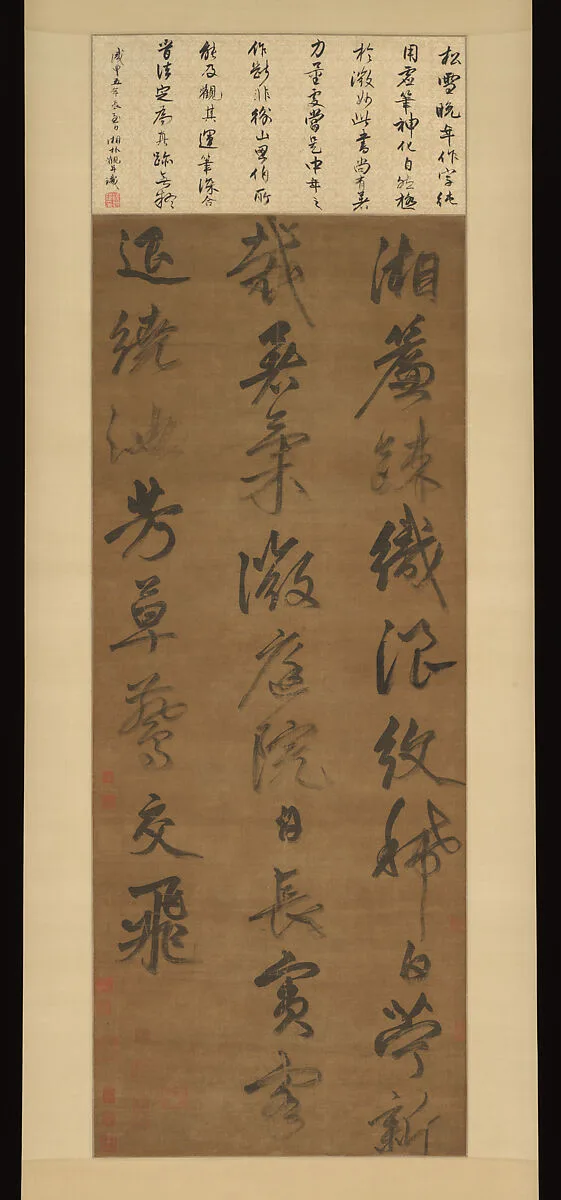 松雪晚年作字純
用虛筆神化自然極
於微妙此書尚有著
力量處當是中年之
作斷非山伯所
能及觀其運筆深合
晉法定為真跡無疑
年長至日湘林觀并識
湘簾疎織浪紋稀白苧新
裁暑氣微庭院日長賓客
退繞池芳草鷰交飛